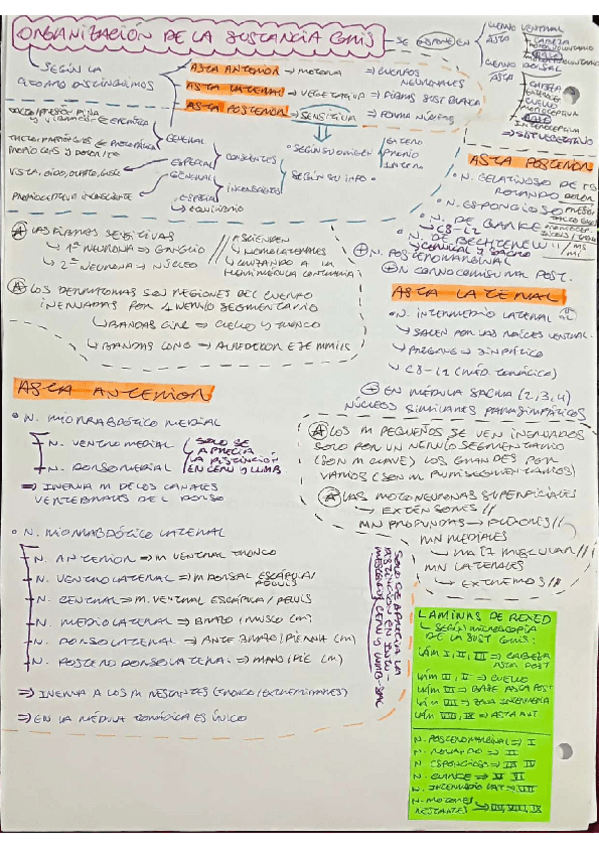 ORGANIZACIÓN DE LA SUSTANCIA GRIS
SE DISPONE EN
CUERNO VENTRAL
ASTA
CABEZA
CUERNO DORSAL
ASTA
CABEZA
CUELLO
BASE
INTEROCEPTIVA
SIST VEGETATIVO
SEGÚN LA
DISTINGUIMOS
ASTA ANTERIOR ⇒ MOTORA
ASTA LATERAL ⇒ VEGETATIVA
ASTA POSTERIOR ⇒ SENSITIVA
⇒ CUERPOS NEURONALES
⇒ FIBRAS SUST BLANCA
⇒ FORMA NÚCLEOS
GENERAL
ESPECIAL
CONSCIENTES
GENERAL
ESPECIAL
INCONSCIENTES
→ EQUILIBRIO
VISTA, OÍDO, GUSTO
PROPIOCEPTIVA INCONSCIENTE
• SEGÚN SU ORIGEN
EXTERO
PROPIO
INTERO
SEGÚN SU INFO
ASTA POSTERIOR
• N. GELATINOSO DE
ROLANDO DOLOR
• N. ESPONGIOSO
• N. DE CLARKE
C8-L2
• N. DE BECHTEREW
CERVICAL Y SACRO
+ N. POSTEROMARGINAL
+ N COMISURAL POST.
A LAS FIBRAS SENSITIVAS
→ 1ª NEURONA ⇒ GANGLIO
→ 2ª NEURONA ⇒ NÚCLEO
ASCIENDEN
→ HOMOLATERALES
→ CRUZANDO A LA
HEMIMÉDULA CONTRARIA
A LOS DERMATOMAS SON REGIONES DEL CUERPO
INERVADAS POR 1 NERVIO SEGMENTARIO
→ BANDAS CIRC ⇒ CUELLO Y TRONCO
→ BANDAS LONG ⇒ ALREDEDOR EJE MMII
ASTA LATERAL
• N. INTERMEDIO LATERAL
→ SALEN POR LAS RAÍCES VENTRAL.
→ SIMPÁTICO
→ C8-L2
+ EN MÉDULA SACRA (2,3,4)
NÚCLEOS SIMILARES PARASIMPÁTICOS
ASTA ANTERIOR
• N. MIORRABDÓTICO MEDIAL
N. VENTROMEDIAL
N. DORSOMEDIAL
SOLO SE
APRECIA
LA DISTINCIÓN
EN CERV Y LUMB
⇒ INERVA M DE LOS CANALES
VERTEBRALES DEL DORSO
• N. MIORRABDÓTICO LATERAL
N. ANTERIOR ⇒ M VENTRAL TRONCO
N. VENTROLATERAL ⇒ M DORSAL ESCÁPULA/PELVIS
N. CENTRAL ⇒ M. VENTRAL ESCÁPULA/PELVIS
N. MEDIOLATERAL ⇒ BRAZO/MUSLO (M)
N. DORSOLATERAL ⇒ ANTEBRAZO/PIERNA (M)
N. POSTERODORSOLATERAL ⇒ MANO/PIE (M)
SOLO SE APRECIA LA
DISTINCIÓN EN
⇒ INERVA A LOS M RESTANTES (TRONCO/EXTREMIDADES)
⇒ EN LA MÉDULA TORÁCICA ES ÚNICO
A LOS M PEQUEÑOS SE VEN INERVADOS
SOLO POR UN NERVIO SEGMENTARIO
(SON M CLAVE) LOS GRANDES POR
VARIOS (SON M PLURISEGMENTARIOS)
A LAS MOTONEURONAS SUPERFICIALES
→ EXTENSORES //
MN PROFUNDAS → FLEXORES //
MN MEDIALES
→ RAÍZ MUSCULAR //
MN LATERALES
→ EXTREMOS //
LAMINAS DE REXED
→ SEGÚN MICROSCOPÍA
DE LA SUST GRIS:
LÁM I, II, III ⇒ CABEZA
ASTA POST
⇒ CUELLO
⇒ BASE ASTA POST
LÁM VII ⇒ ZONA INTERMEDIA
LÁM VIII, IX ⇒ ASTA ANT
N. POSTEROMARGINAL ⇒ I
N. ROLANDO ⇒ II
N. ESPONGIOSO ⇒ III IV
N. CLARKE ⇒ V VI
N. INTERMEDIO LAT ⇒ VII
N. MOTORES
RESTANTES ⇒ VII, VIII, IX